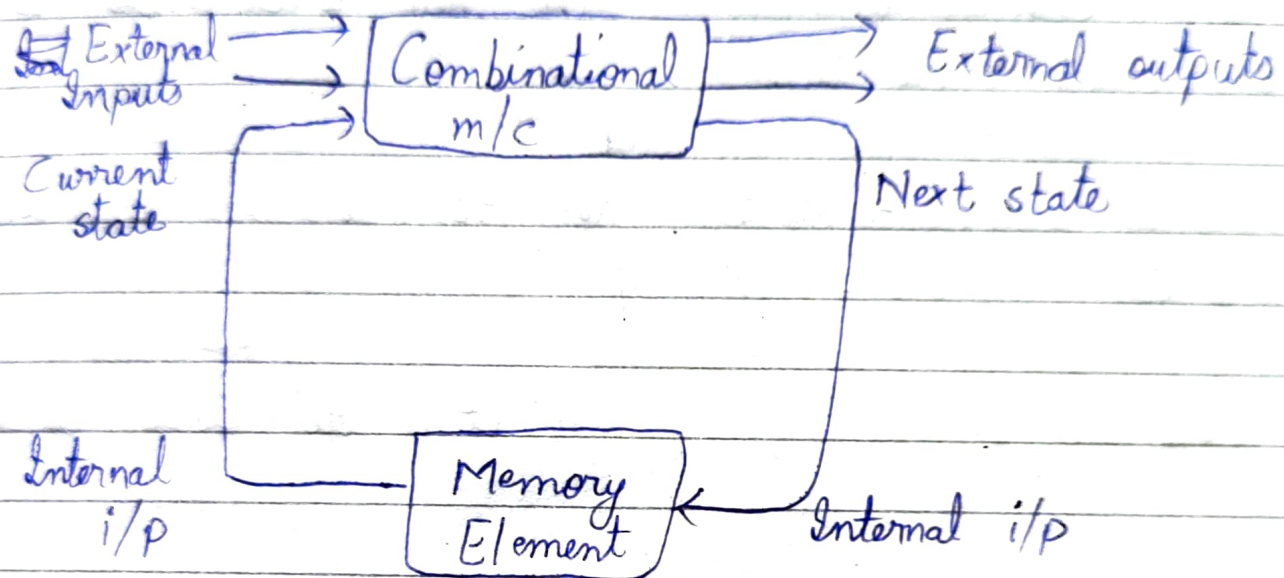 External
Inputs
Combinational
m/c
External outputs
Current
state
Next state
Internal
i/p
Memory
Element
Internal i/p